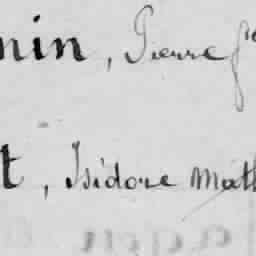 nin, Pierre f
t, Isidore Math